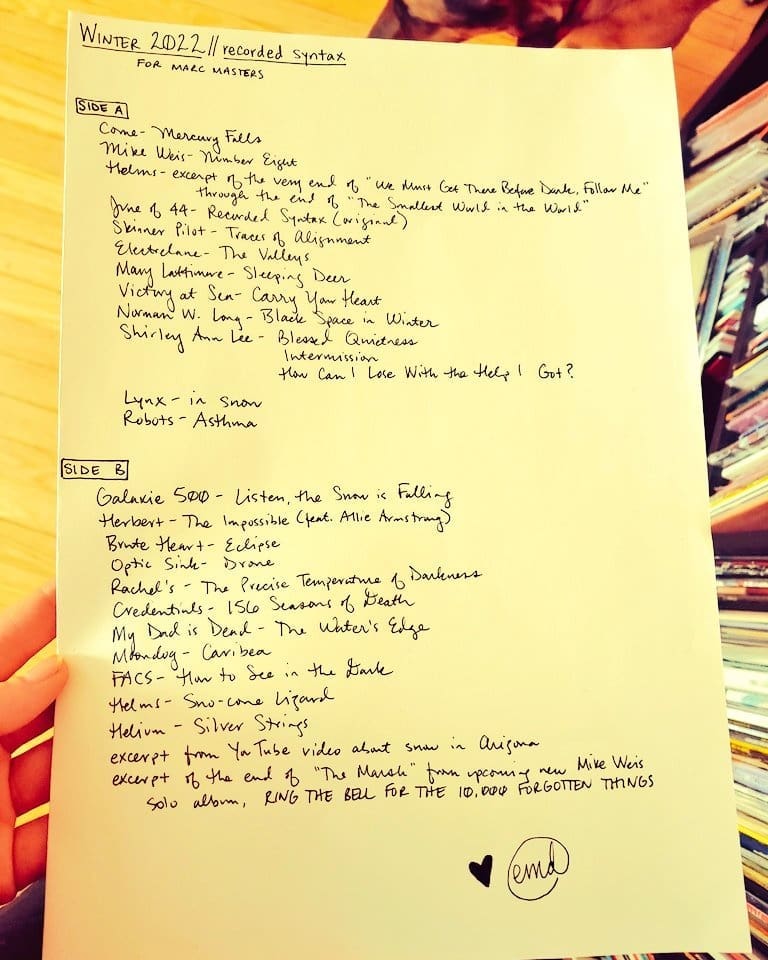 WINTER 2022 // recorded syntax
FOR MARC MASTERS
SIDE A
Come - Mercury Falls
Mike Weis - Number Eight
Helms - excerpt of the very end of "We Must Get There Before Dark, Follow Me"
through the end of "The Smallest World in the World"
June of 44 - Recorded Syntax (original)
Skinner Pilot - Traces of Alignment
Electrelane - The Valleys
Mary Lattimore - Sleeping Deer
Victory at Sea - Carry Your Heart
Norman W. Long - Black Space in Winter
Shirley Ann Lee - Blessed Quietness
Intermission
How Can I Lose With the Help I Got?
Lynx - in snow
Robots - Asthma
SIDE B
Galaxie 500 - Listen, the Snow is Falling
Herbert - The Impossible (feat. Allie Armstrong)
Brute Heart - Eclipse
Optic Sink - Drone
Rachel's - The Precise Temperature of Darkness
Credentials - 156 Seasons of Death
My Dad is Dead - The Water's Edge
Moondog - Caribea
FACS - How to See in the Dark
Helms - Sno-cone Lizard
Helium - Silver Strings
excerpt from YouTube video about snow in Arizona
excerpt of the end of "The Marsh" from upcoming new Mike Weis
solo album, RING THE BELL FOR THE 10,000 FORGOTTEN THINGS
♥ emd